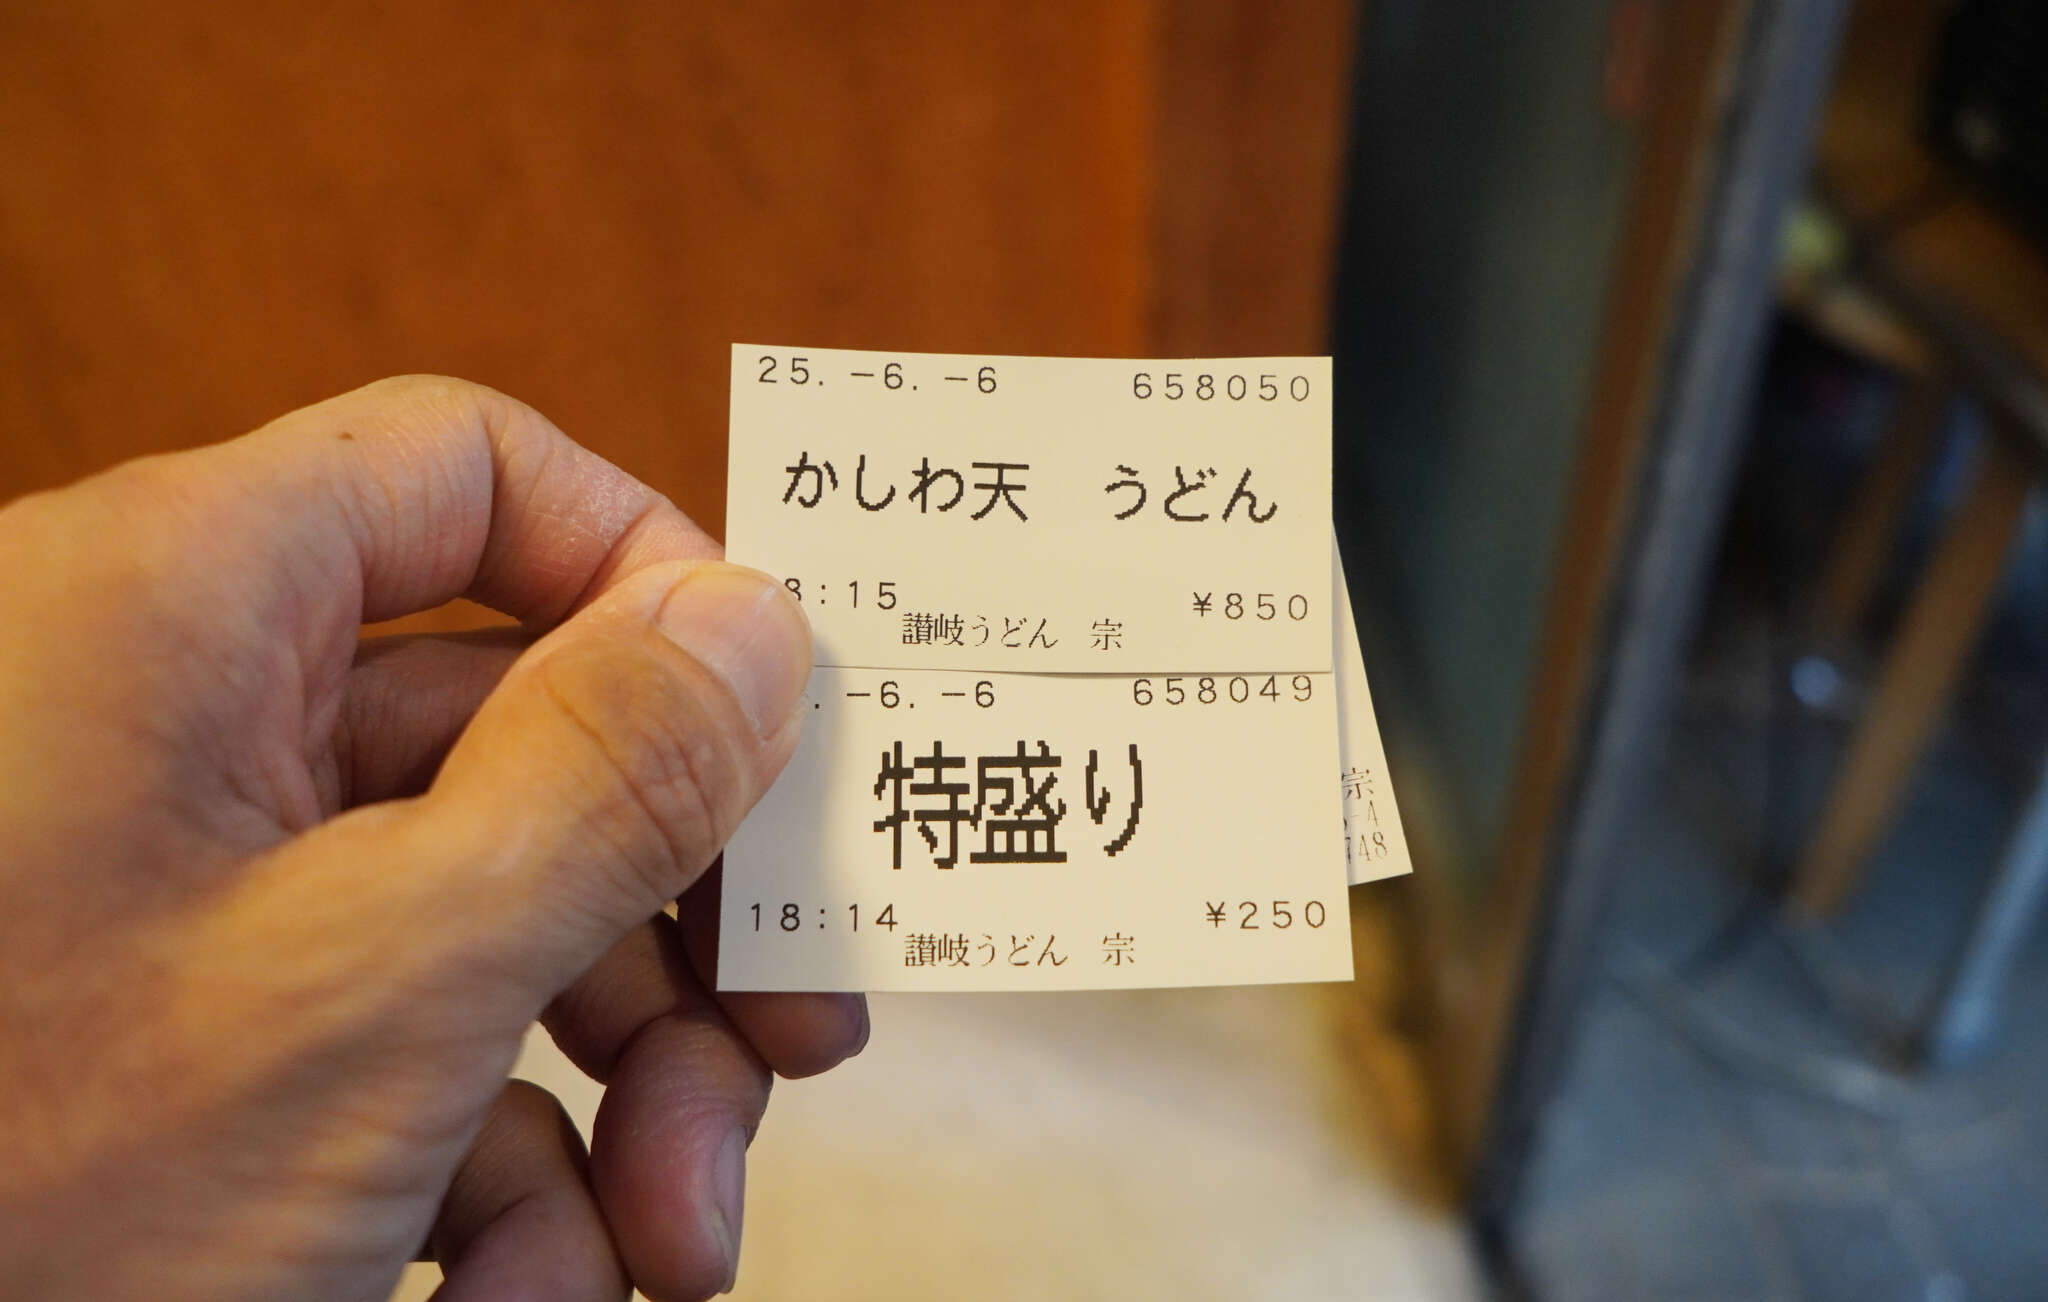 25.-6.-6 658050
かしわ天 うどん
8:15 ¥850
讃岐うどん 宗
.-6.-6 658049
特盛り
18:14 ¥250
讃岐うどん 宗
宗
-A
748